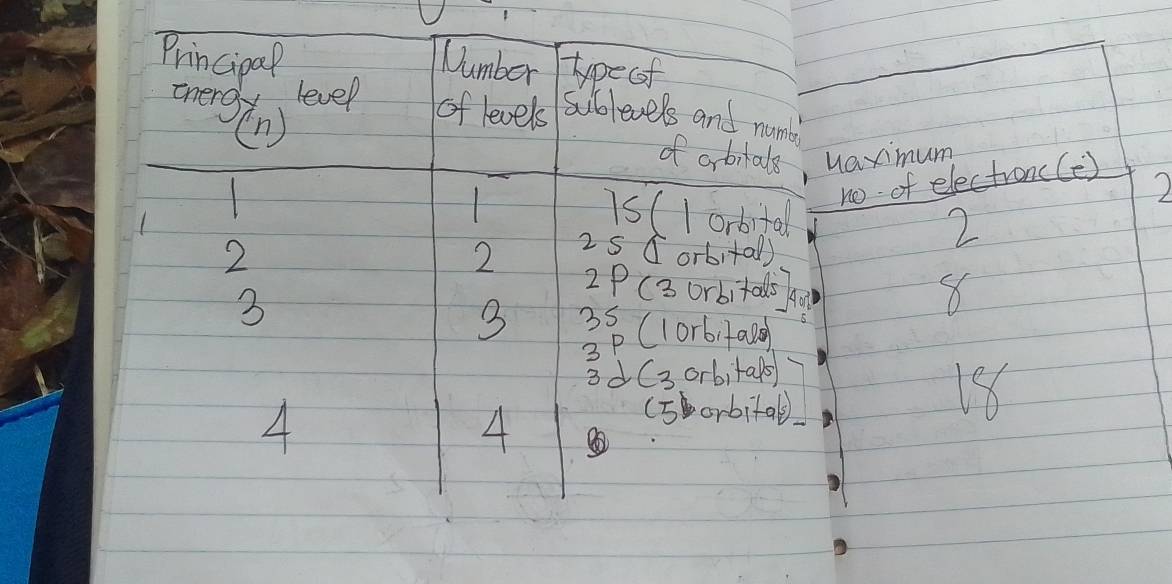 Principal
energy level
(n)
Number
of levels
type of
sublevels and number
of orbitals
maximum
no. of electrons (e)
1
1
1S (1 orbital
2
2
2
2S (1 orbital)
2P (3 orbitals]
8
3
3
3S (1 orbitals)
3P
3d (3 orbitals)
(5 orbitals)
18
4
4
2